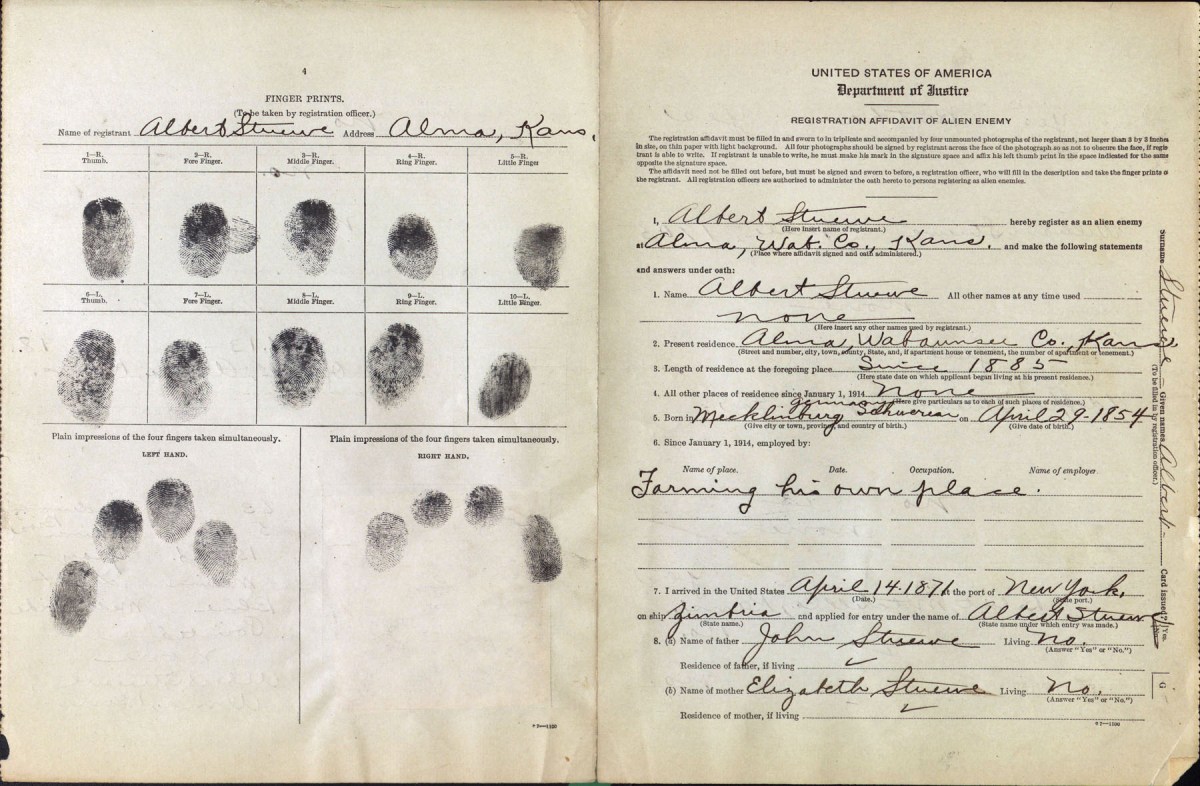 4
FINGER PRINTS.
(To be taken by registration officer.)
Name of registrant Albert Stuewe Address Alma, Kans.
1—R. Thumb. 2—R. Fore Finger. 3—R. Middle Finger. 4—R. Ring Finger. 5—R. Little Finger
6—L. Thumb. 7—L. Fore Finger. 8—L. Middle Finger. 9—L. Ring Finger. 10—L. Little Finger.
Plain impressions of the four fingers taken simultaneously.
LEFT HAND.
Plain impressions of the four fingers taken simultaneously.
RIGHT HAND.
UNITED STATES OF AMERICA
Department of Justice
REGISTRATION AFFIDAVIT OF ALIEN ENEMY
The registration affidavit must be filled in and sworn to in triplicate and accompanied by four unmounted photographs of the registrant, not larger than 3 by 3 inches
in size, on thin paper with light background. All four photographs should be signed by registrant across the face of the photograph so as not to obscure the face, if regis
trant is able to write. If registrant is unable to write, he must make his mark in the signature space and affix his left thumb print in the space indicated for the same
opposite the signature space.
The affidavit need not be filled out before, but must be signed and sworn to before, a registration officer, who will fill in the description and take the finger prints o
the registrant. All registration officers are authorized to administer the oath hereto to persons registering as alien enemies.
I, Albert Stuewe hereby register as an alien enemy
(Here insert name of registrant.)
at Alma, Wab. Co., Kans. and make the following statements
(Place where affidavit signed and oath administered.)
and answers under oath:
1. Name Albert Stuewe All other names at any time used
none
(Here insert any other names used by registrant.)
2. Present residence Alma, Wabaunsee Co., Kans
(Street and number, city, town, county, State, and, if apartment house or tenement, the number of apartment or tenement.)
3. Length of residence at the foregoing place Since 1885
(Here state date on which applicant began living at his present residence.)
4. All other places of residence since January 1, 1914 None
(Here give particulars as to each of such places of residence.)
Germany
5. Born in Mecklinburg Schwerean on April 29-1854
(Give city or town, province, and country of birth.) (Give date of birth.)
6. Since January 1, 1914, employed by:
Name of place. Date. Occupation. Name of employer
Farming his own place.
7. I arrived in the United States April 14-1871 at the port of New York,
(Date.) (State port.)
on ship Zimbria and applied for entry under the name of Albert Stuewe
(State name.) (State name under which entry was made.)
8. (a) Name of father John Stuewe Living No.
(Answer "Yes" or "No.")
Residence of father, if living
(b) Name of mother Elizabeth Stuewe Living No.
(Answer "Yes" or "No.")
Residence of mother, if living
Surname Stuewe — Given names Albert — Card issued?
(To be filled in by registration officer.)
G